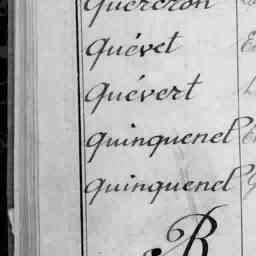 Quercron
Quévet
Quévert
Quinquenel
Quinquenel
R